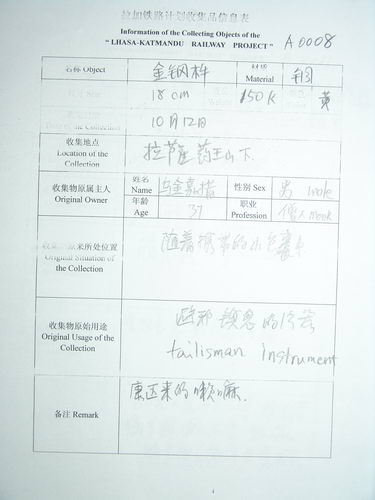 拉加铁路计划收集品信息表
Information of the Collecting Objects of the
“ LHASA-KATMANDU RAILWAY PROJECT” A0008
名称 Object 金钢杵 材质 Material 铜
18 cm 150k 黄
of the Collection 10月12日
收集地点
Location of the
Collection
拉萨 药王山下.
收集物原属主人
Original Owner
姓名
Name
性别 Sex 男 male
年龄
Age
37
职业
Profession
僧人 mook
原来所处位置
Original Situation of
the Collection
随着
收集物原始用途
Original Usage of the
Collection
避邪 镇恶 的法器
tailisman instrument
备注 Remark 康区来的喇嘛.